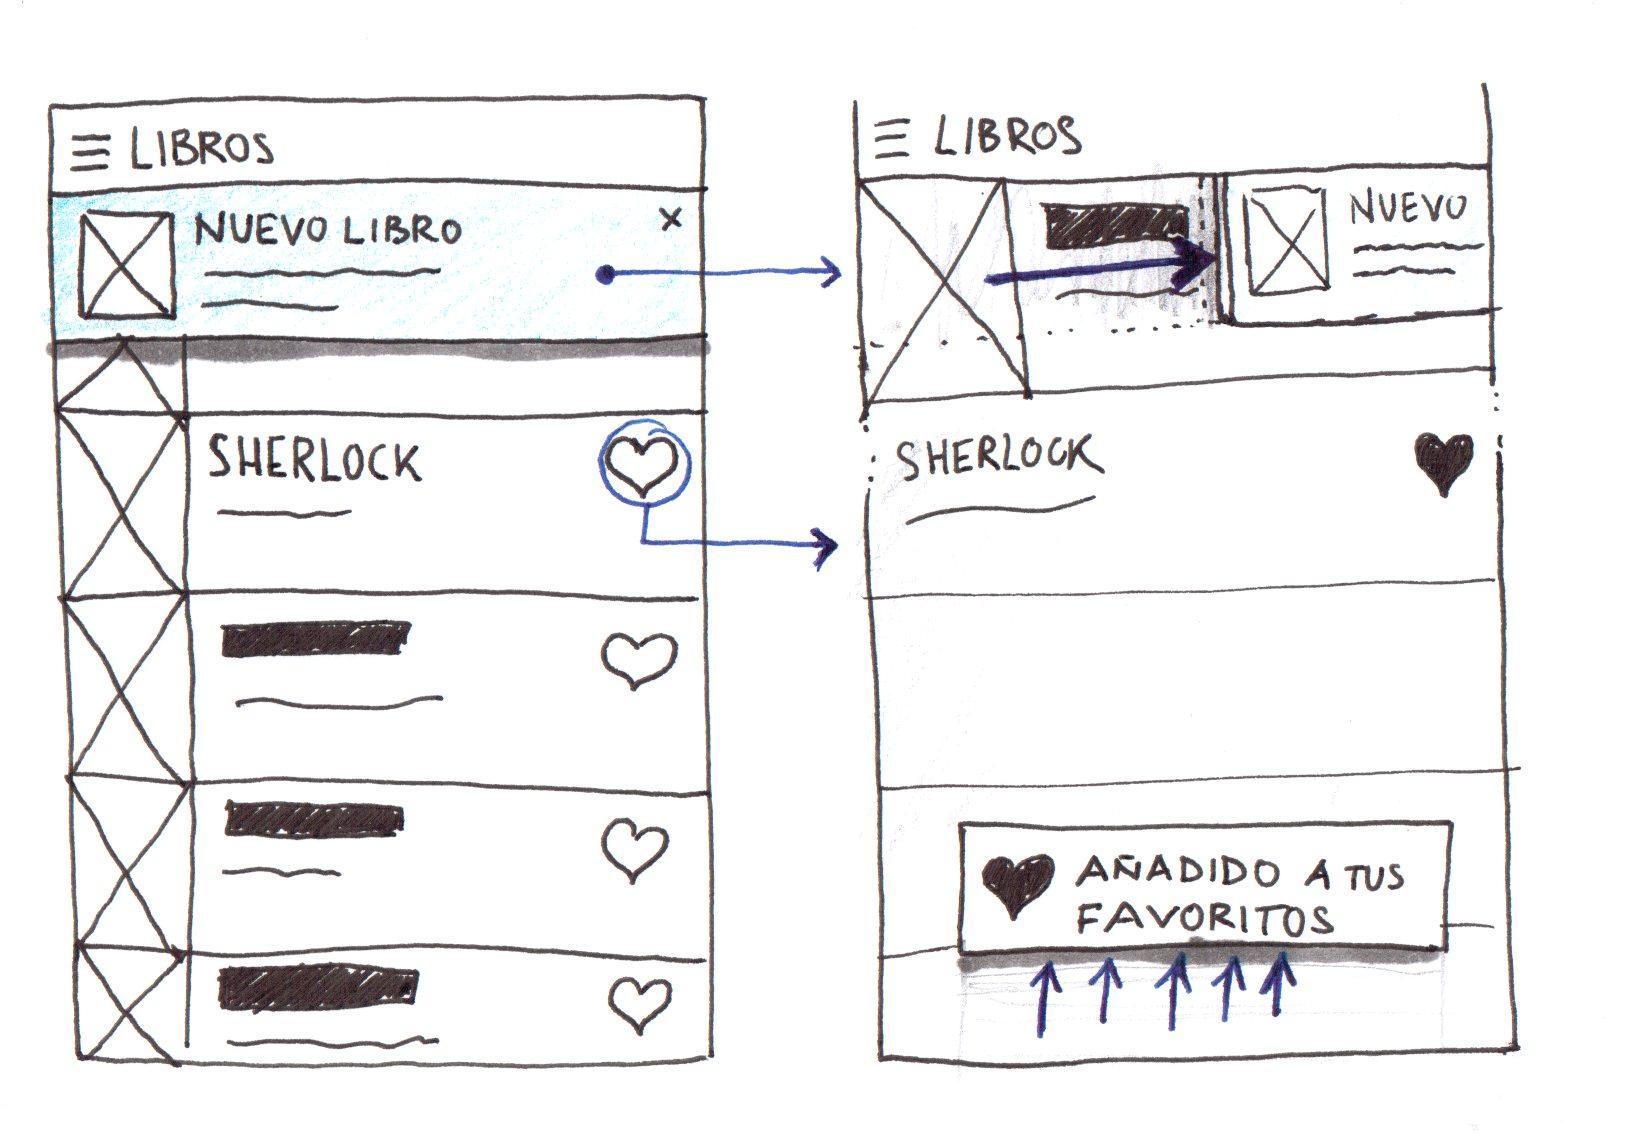 LIBROS
NUEVO LIBRO
X
SHERLOCK
LIBROS
NUEVO
SHERLOCK
AÑADIDO A TUS
FAVORITOS